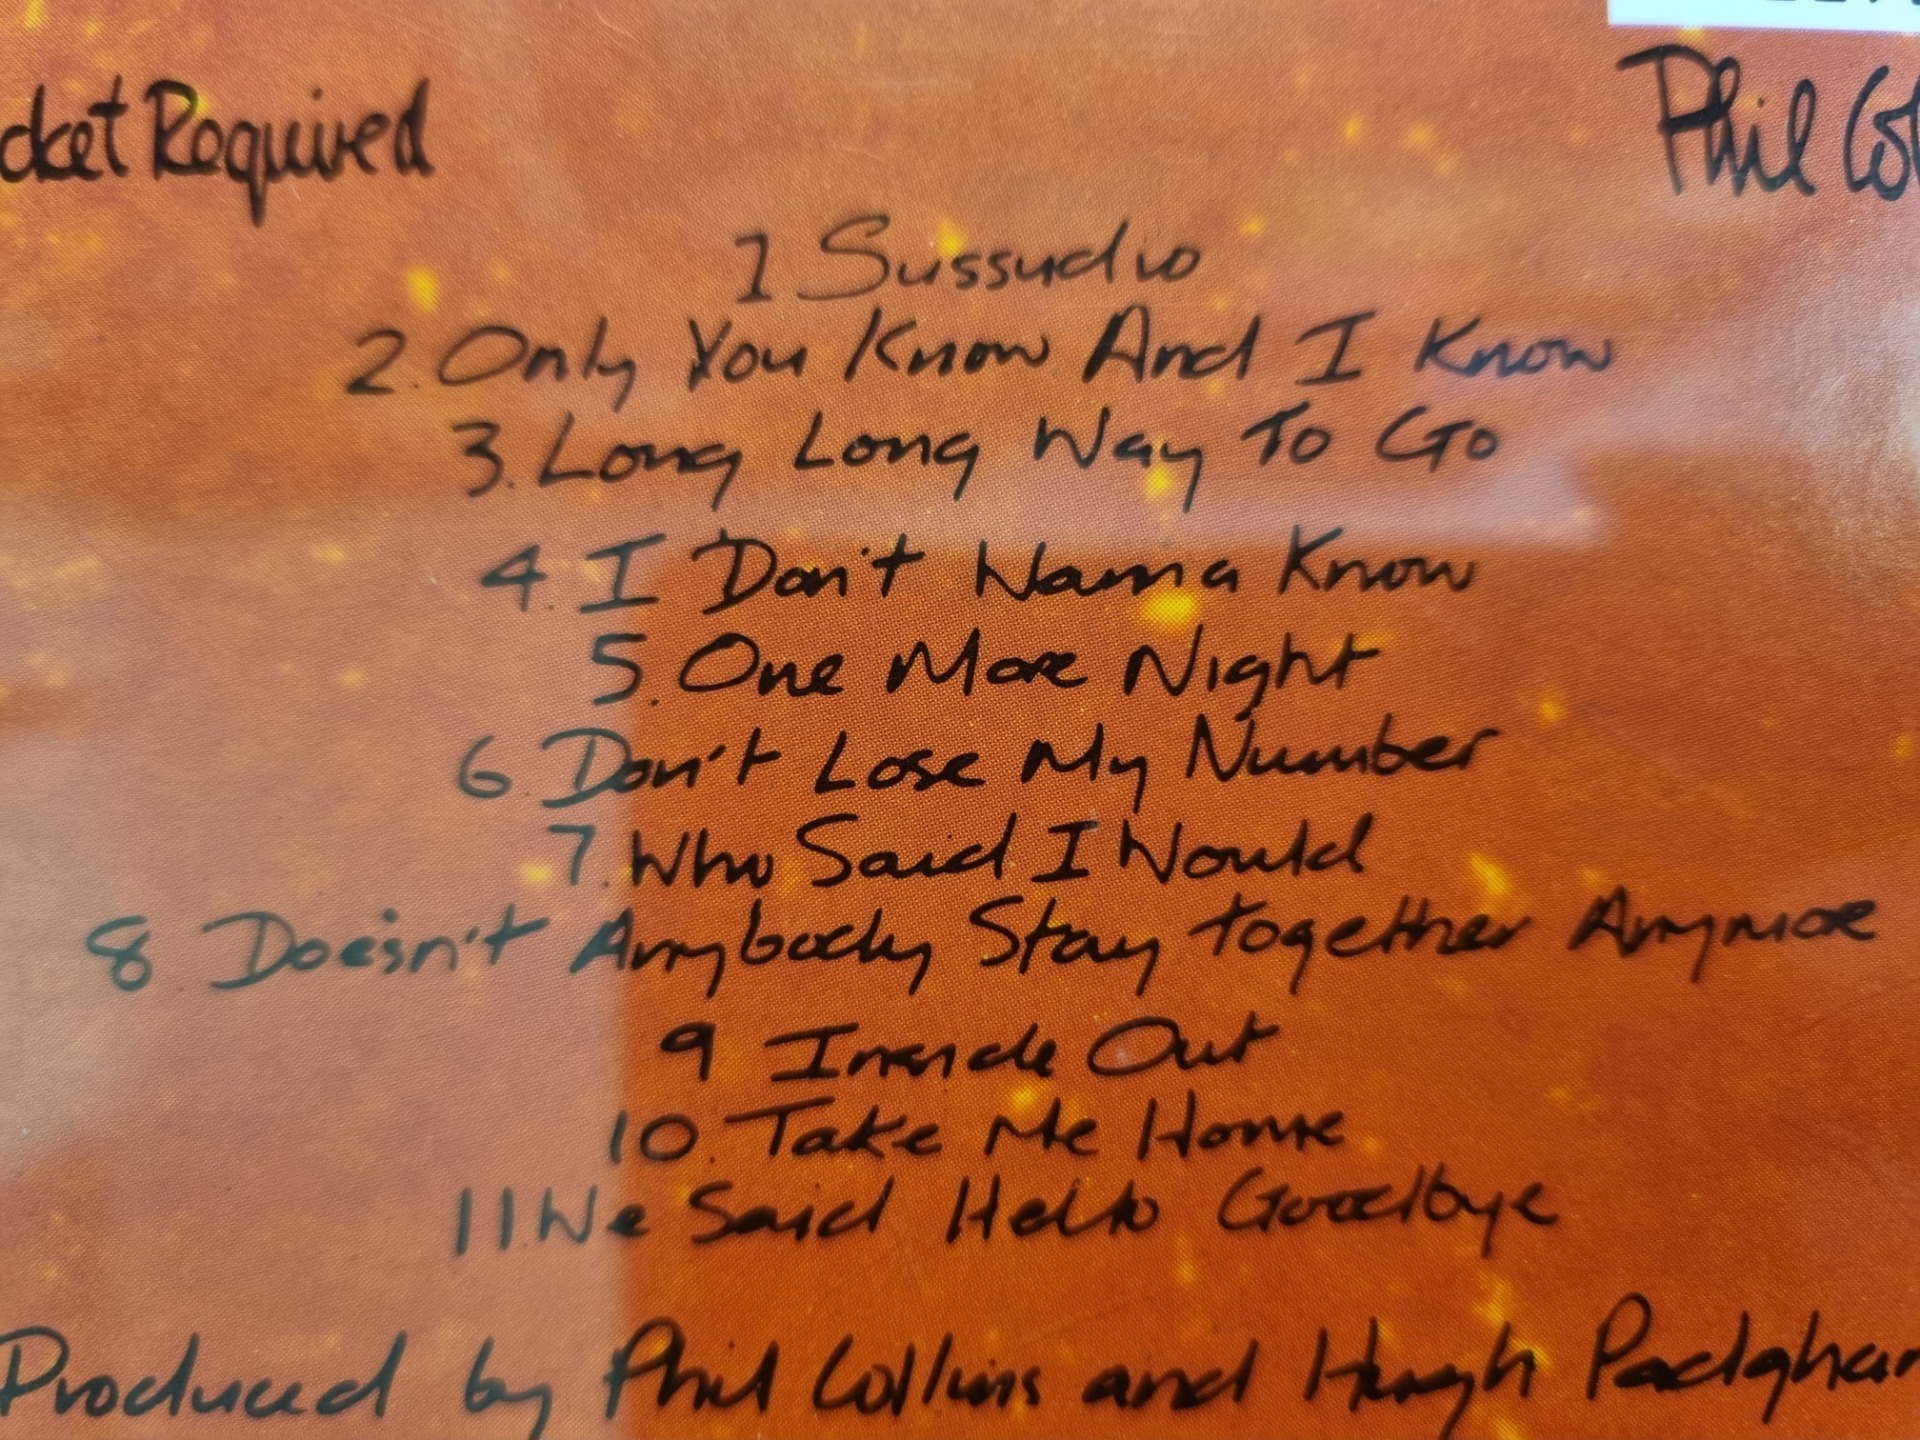 cket Required
Phil Col
1 Sussudio
2. Only You Know And I Know
3. Long Long Way To Go
4. I Don't Wanna Know
5. One More Night
6. Don't Lose My Number
7. Who Said I Would
8 Doesn't Anybody Stay Together Anymore
9 Inside Out
10. Take Me Home
11. We Said Hello Goodbye
Produced by Phil Collins and Hugh Padgham